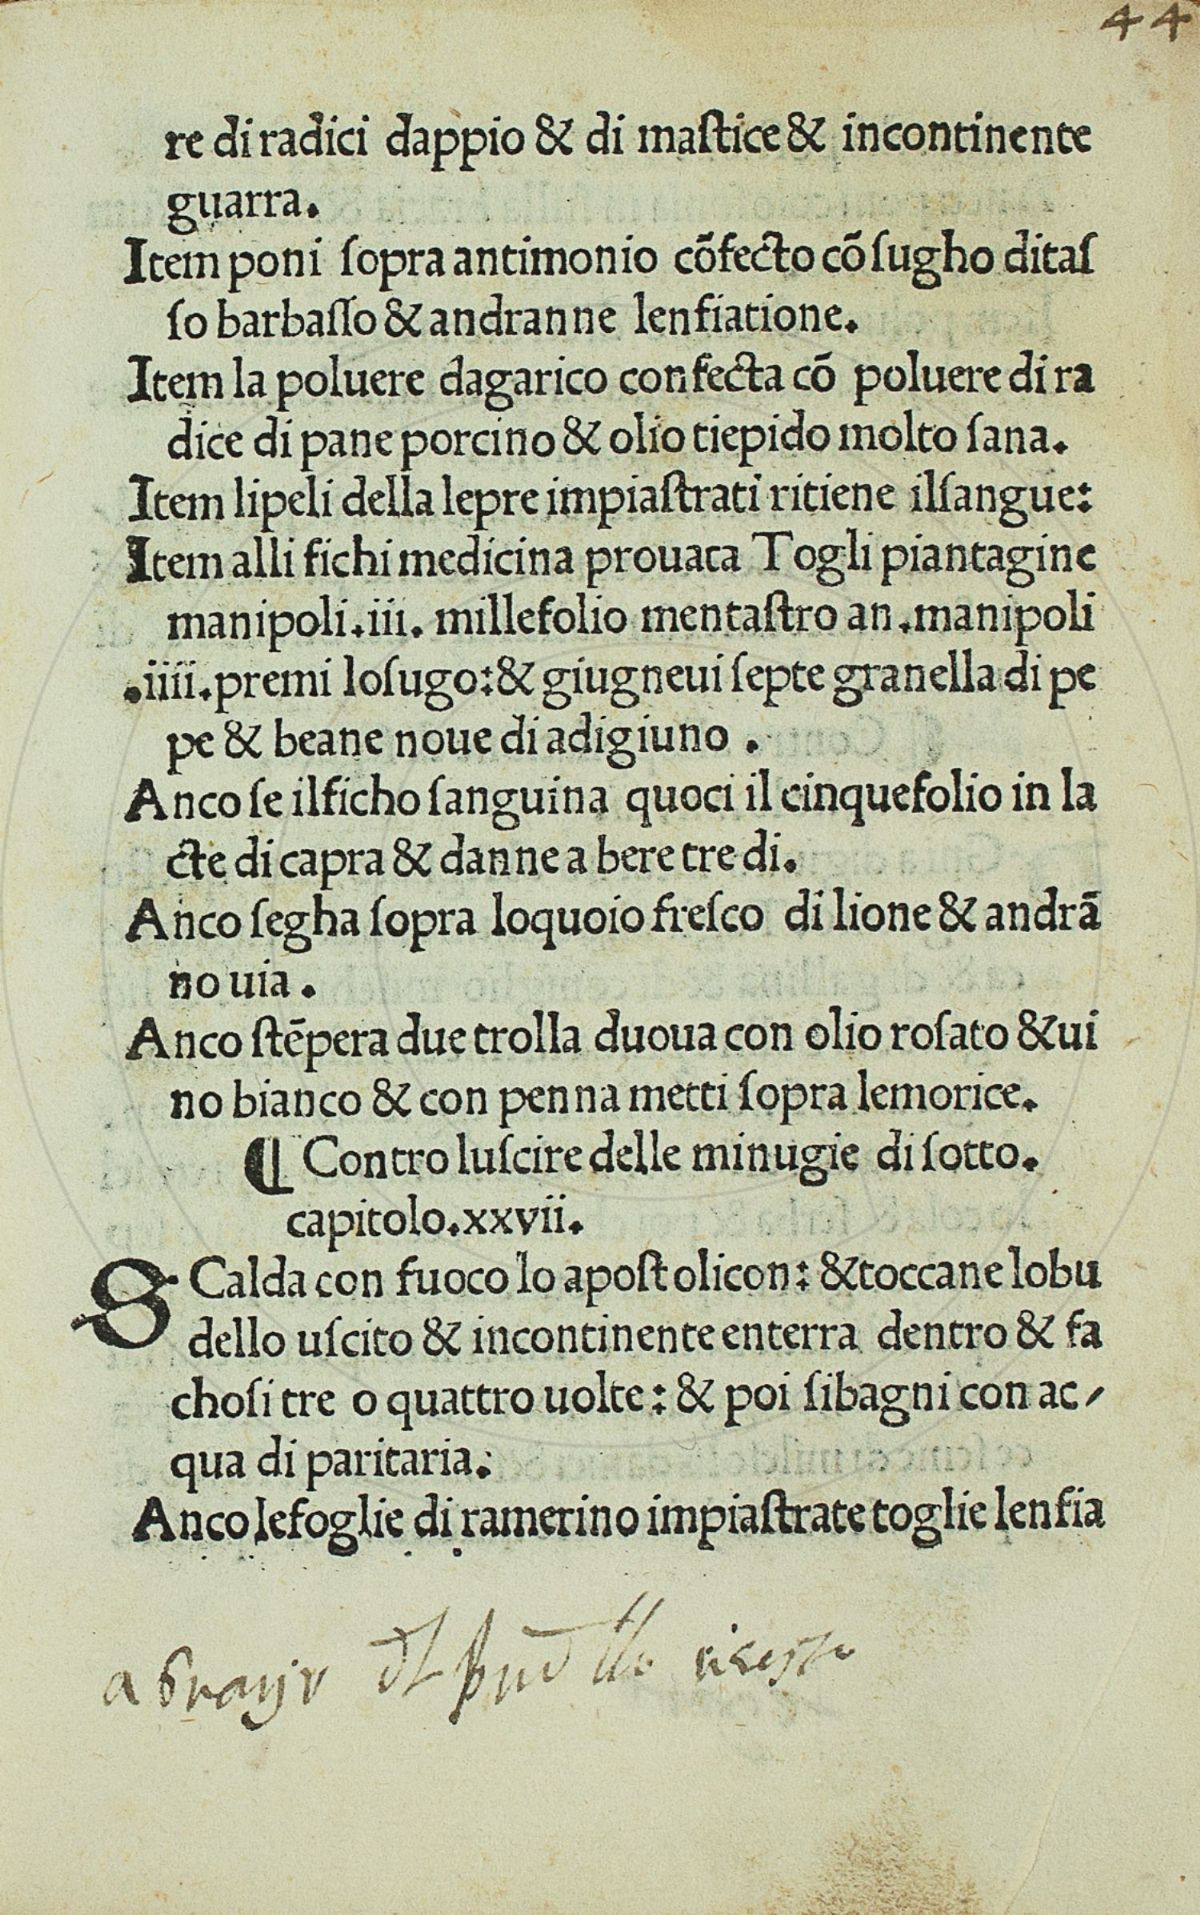 44
re di radici dappio & di maſtice & incontinente
guarra.
Item poni ſopra antimonio cõfecto cõ ſugho ditaſ
ſo barbaſſo & andranne lenfiatione.
Item la poluere dagarico confecta cõ poluere di ra
dice di pane porcino & olio tiepido molto ſana.
Item lipeli della lepre impiaſtrati ritiene ilſangue:
Item alli fichi medicina prouata Togli piantagine
manipoli.iii. millefolio mentaſtro an.manipoli
.iiii.premi loſugo:& giugneui ſepte granella di pe
pe & beane noue di adigiuno .
Anco ſe ilficho ſanguina quoci il cinquefolio in la
cte di capra & danne a bere tre di.
Anco ſegha ſopra loquoio freſco di lione & andrã
no uia .
Anco ſtẽpera due trolla duoua con olio roſato & ui
no bianco & con penna metti ſopra lemorice.
¶ Contro luſcire delle minugie di ſotto.
capitolo.xxvii.
SCalda con fuoco lo apoſtolicon: & toccane lobu
dello uſcito & incontinente enterra dentro & fa
choſi tre o quattro uolte: & poi ſibagni con ac/
qua di paritaria.
Anco lefoglie di ramerino impiaſtrate toglie lenfia